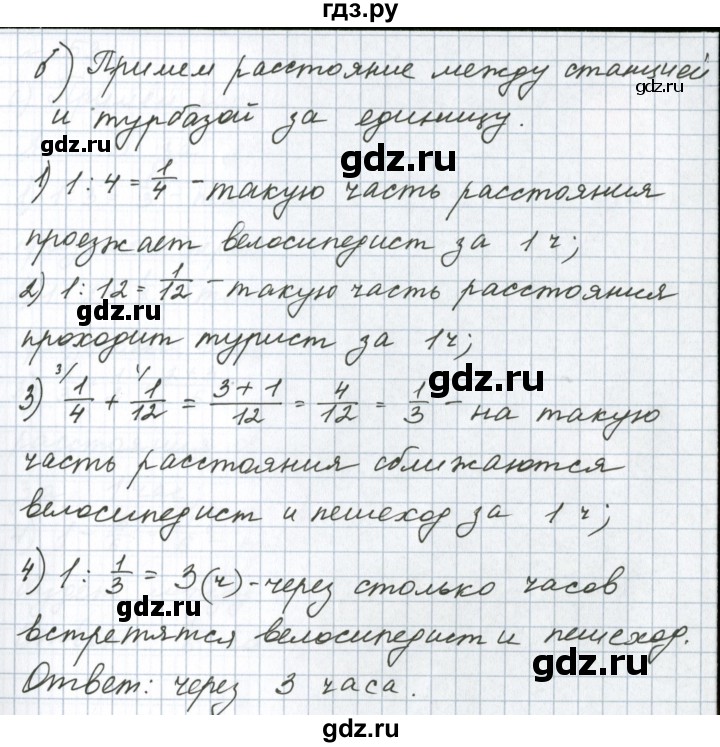 гдз.ру
б) Примем расстояние между станцией
gdz.ru
и турбазой за единицу.
gdz.ru
gdz.ru
1) 1 : 4 = 1/4 - такую часть расстояния
проезжает велосипедист за 1 ч;
2) 1 : 12 = 1/12 - такую часть расстояния
gdz.ru
проходит турист за 1ч;
gdz.ru
3) 3/ 1/4 + 1/ 1/12 = 3+1/12 = 4/12 = 1/3 - на такую
часть расстояния сближаются
велосипедист и пешеход за 1 ч;
gdz.ru
4) 1 : 1/3 = 3 (ч) - через столько часов
gdz.ru
встретятся велосипедист и пешеход.
gdz.ru
Ответ: через 3 часа.
gdz.ru